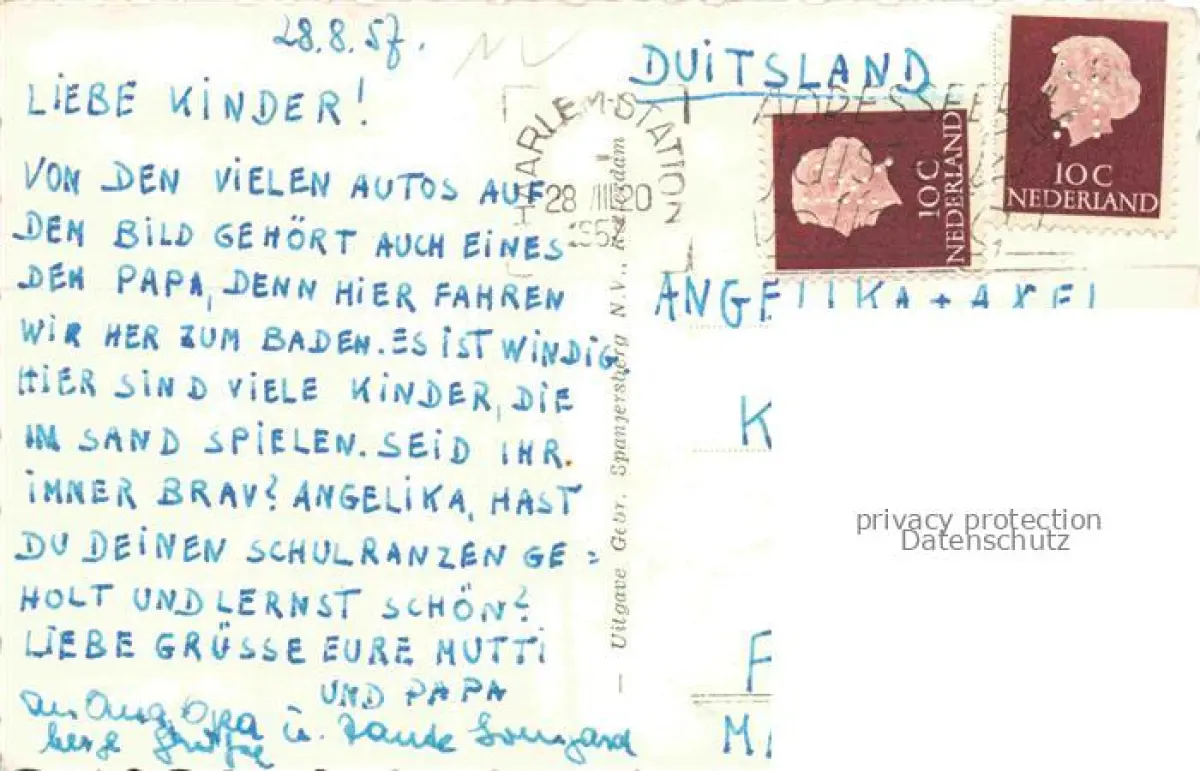 28.8.57.
LIEBE KINDER!
VON DEN VIELEN AUTOS AUF
DEM BILD GEHÖRT AUCH EINES
DEM PAPA, DENN HIER FAHREN
WIR HER ZUM BADEN. ES IST WINDIG.
HIER SIND VIELE KINDER, DIE
IM SAND SPIELEN. SEID IHR
IMMER BRAV? ANGELIKA, HAST
DU DEINEN SCHULRANZEN GE=
HOLT UND LERNST SCHÖN?
LIEBE GRÜSSE EURE MUTTI
UND PAPA
an Oma, Opa u. Tante
herzl. Grüße
Uitgave Gebr. Spanjersberg N.V., Rotterdam
DUITSLAND
HAARLEM-STATION
28 VIII 20
195
10 C
NEDERLAND
10 C
NEDERLAND
ANGELIKA + AXEL
K
F
M
privacy protection
Datenschutz